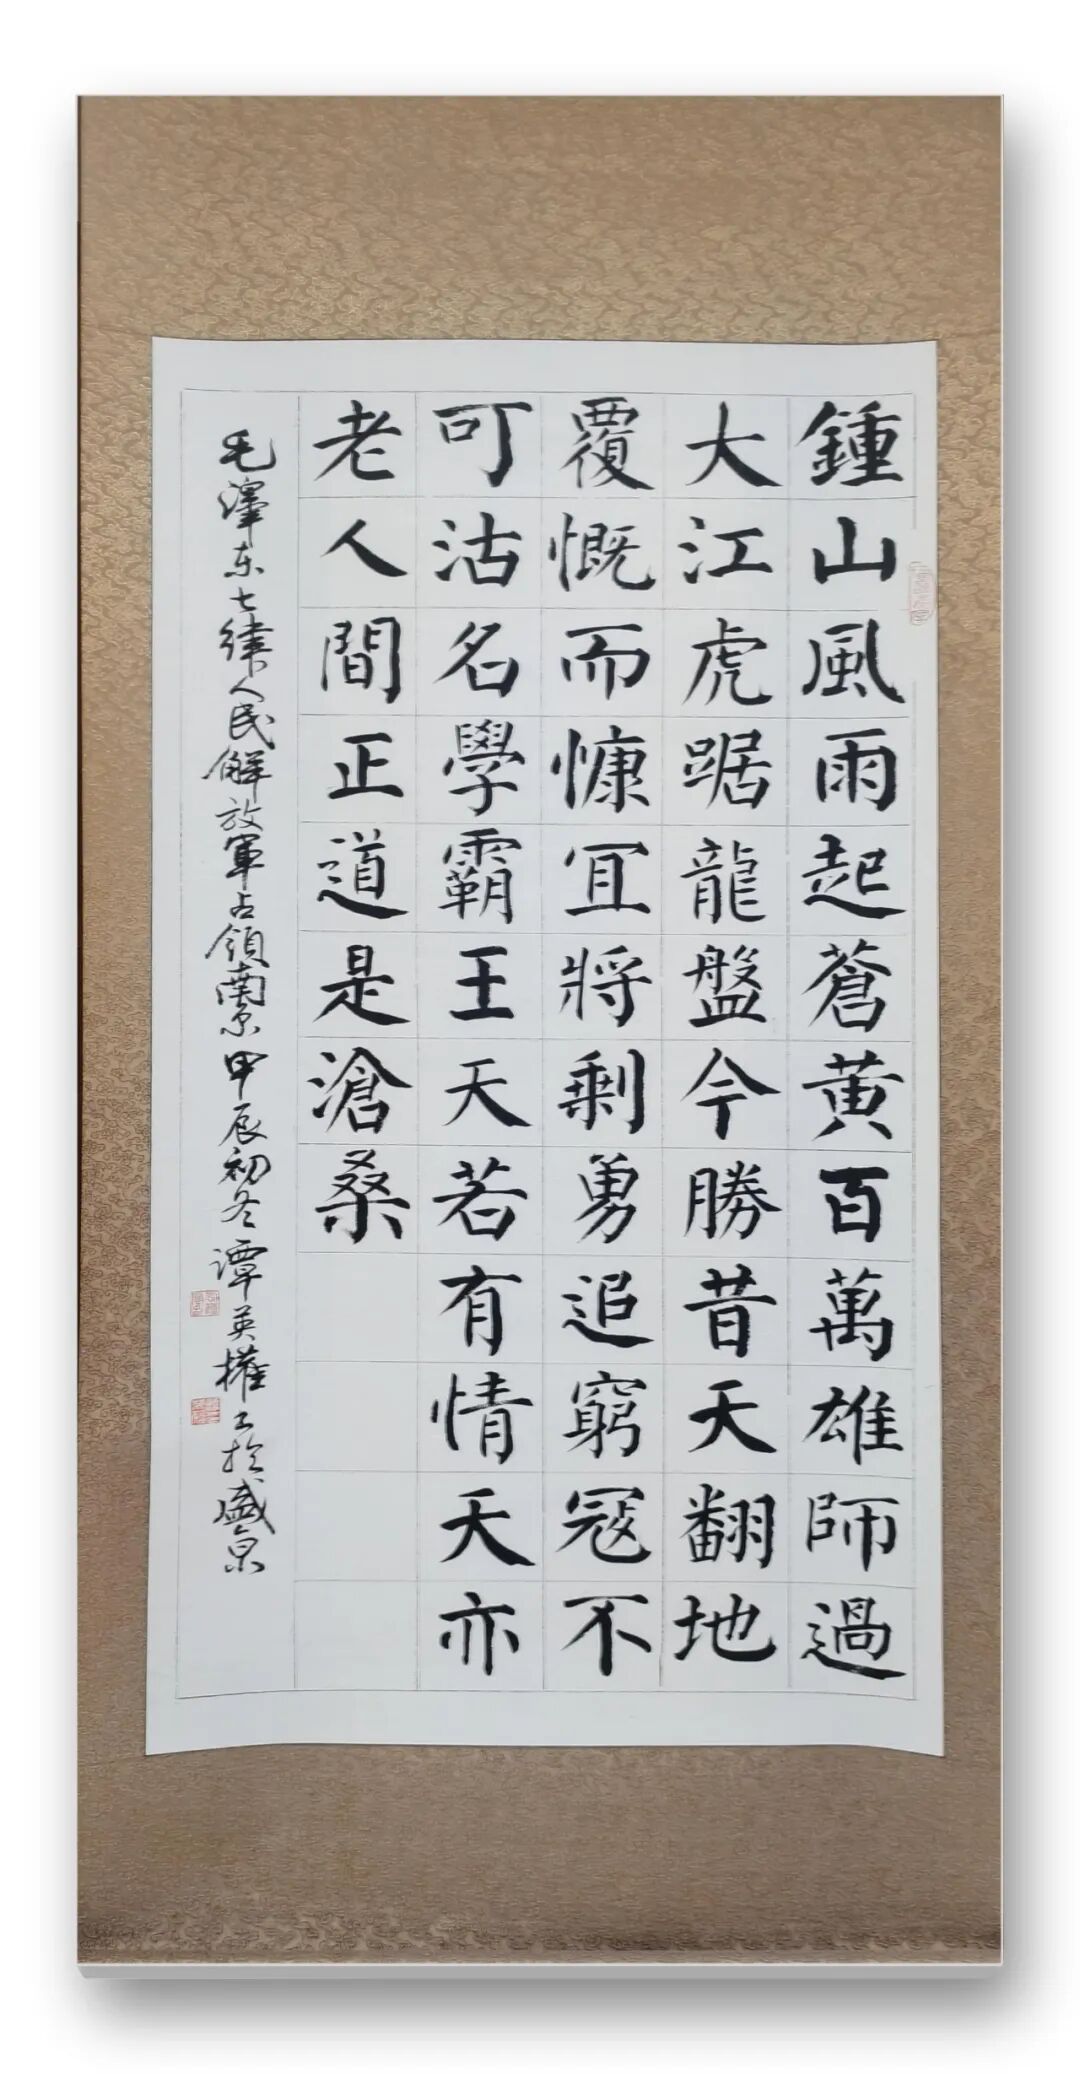 鍾山風雨起蒼黃百萬雄師過
大江虎踞龍盤今勝昔天翻地
覆慨而慷宜將剩勇追窮寇不
可沽名學霸王天若有情天亦
老人間正道是滄桑
毛澤东七律人民解放軍占領南京甲辰初冬譚英權书於盛京